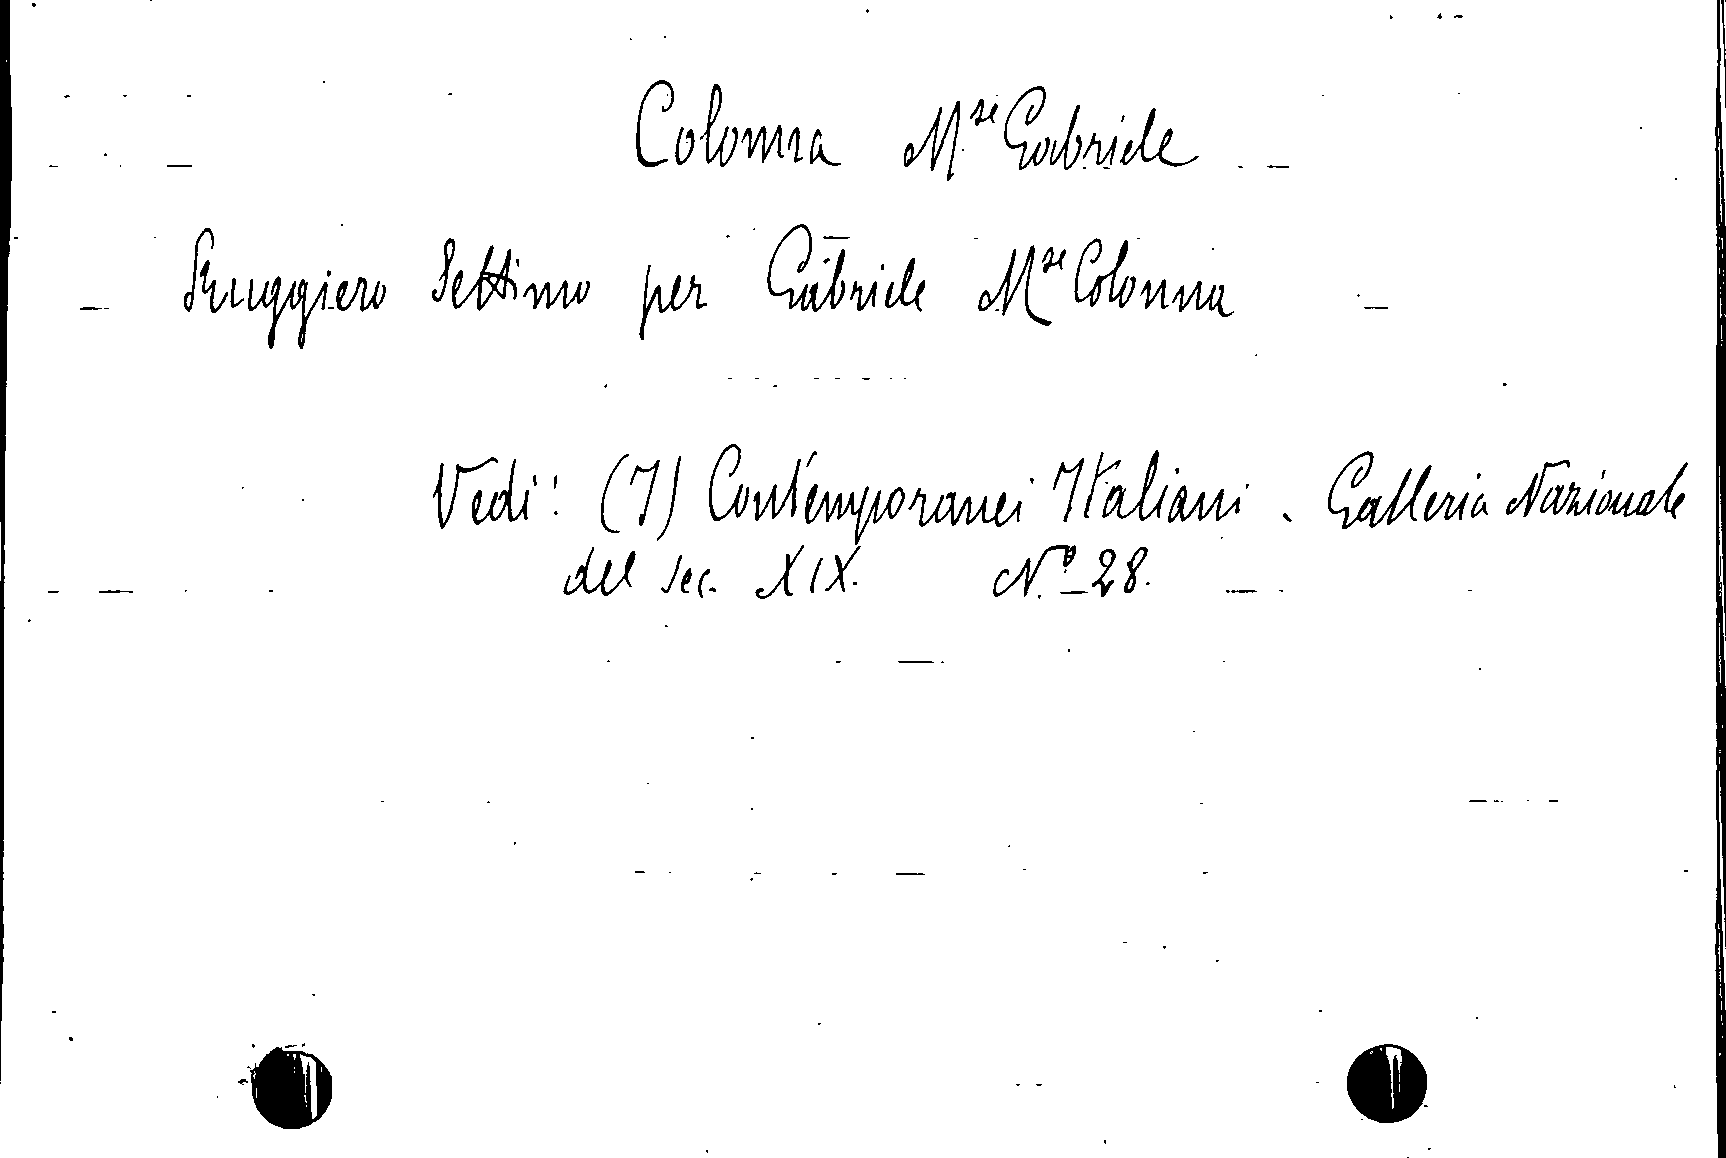 Colonna Mse Gabriele
Ruggiero Settimo per Gabriele Mse Colonna
Vedi: (I) Contemporanei Italiani. Galleria Nazionale
del sec. XIX. No 28.